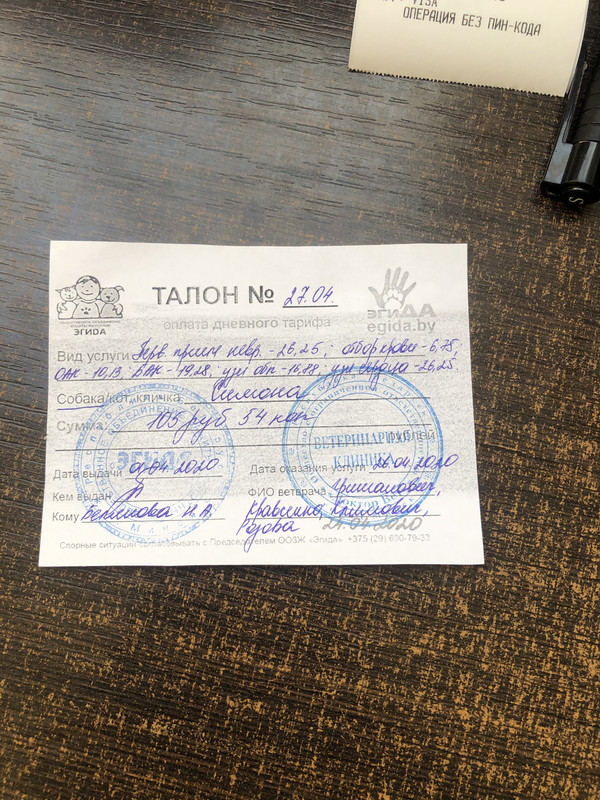 VISA
ОПЕРАЦИЯ БЕЗ ПИН-КОДА
ТАЛОН № 27.04.
ЭГИДА
ЭГИДА
egida.by
оплата дневного тарифа
Вид услуги Перв. прием невр. -26,25; отбор крови -6,75,
ОАК - 10,13 БАК - 19,28; узи бп - 16,88, узи сердца -26,25.
Собака/кот, кличка: Симона
Сумма: 105 руб 54 коп
рублей
Дата выдачи 04.2020 Дата оказания услуги 26.04.2020
Кем выдан ФИО ветврача
Кому И.А.
24.04.2020
ЭГИДА
ВЕТЕРИНАРНАЯ
КЛИНИКА
Спорные ситуации согласовывать с Председателем ООЗЖ «Эгида» +375 (29) 690-79-33